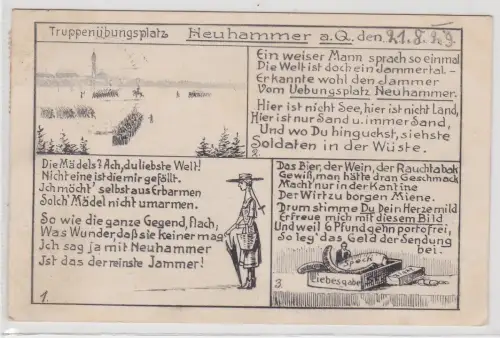 Truppenübungsplatz Neuhammer a.Q. den 21.8.29
Ein weiser Mann sprach so einmal
Die Welt ist doch ein Jammertal.–
Er kannte wohl den Jammer
Vom Uebungsplatz Neuhammer.
Hier ist nicht See, hier ist nicht Land,
Hier ist nur Sand u. immer Sand,
Und wo Du hinguckst, siehste
Soldaten in der Wüste.
Die Mädels? Ach, du liebste Welt!
Nicht eine ist die mir gefällt.
Ich möcht' selbst aus Erbarmen
Solch' Mädel nicht umarmen.
So wie die ganze Gegend, flach;
Was Wunder, daß sie keiner mag
Ich sag ja mit Neuhammer
Ist das der reinste Jammer!
1.
Das Bier, der Wein, der Rauchtabak
Gewiß, man hätte dran Geschmack
Macht' nur in der Kantine
Der Wirt zu borgen Miene.
Drum stimme Du Dein Herze mild
Erfreue mich mit diesem Bild
Und weil 6 Pfund gehn portofrei,
So leg' das Geld der Sendung
bei.
3.
Speck
Liebesgabe